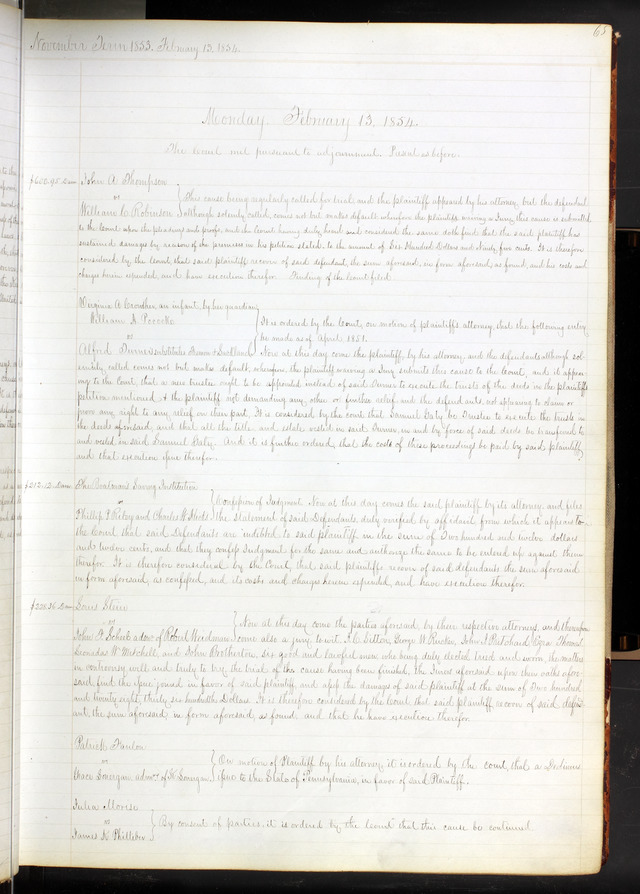 68
November Term 1853. February 13, 1854.
Monday, February 13, 1854.
The Court met pursuant to adjournment. Present as before.
$600.95 Dam John A Thompson
vs This cause being regularly called for trial and the plaintiff appeared by his attorney, but the defendant
William C Robinson although solemnly called, comes not but makes default wherefore the plaintiff waiving a Jury, this cause is submitted
to the Court upon the pleadings and proofs, and the Court having duly heard and considered the same doth find that the said plaintiff has
sustained damages by reason of the premises in his petition stated, to the amount of Six Hundred Dollars and Ninety five cents. It is therefore
considered by the Court that said plaintiff recover of said defendant, the sum aforesaid, in form aforesaid, as found, and his costs and
charges herein expended, and have execution therefor. Finding of the Court filed.
Virginia A Crowther an infant, by her guardian
William A
vs It is ordered by the Court, on motion of plaintiff's attorney, that the following entry
be made as of April 1851.
Alfred Now at this day come the plaintiff, by his attorney, and the defendants although sol-
emnly called comes not but make default, wherefore the plaintiff waiving a Jury submits this cause to the Court, and it appear-
ing to the Court that a new trustee ought to be appointed instead of said to execute the trusts of the deeds in the plaintiff's
petition mentioned, & the plaintiff not demanding any other or further relief, and the defendants not appearing to claim or
prove any right to any relief on their part, It is considered by the court that Samuel Gaty be Trustee to execute the trusts in
the deeds aforesaid, and that all the title and estate vested in said in and by force of said deeds be transferred to
and vested in said Samuel Gaty. And it is further ordered, that the costs of these proceedings be paid by said plaintiff,
and that execution issue therefor.
$212.12 Dam The Boatmen's Saving Institution
vs Confession of Judgment. Now at this day comes the said plaintiff by its attorney, and files
Phillip and Charles W the statement of said Defendants, duly verified by affidavit from which it appears to
the Court that said Defendants are indebted to said plaintiff in the sum of Two hundred and twelve dollars
and twelve cents, and that they confess Judgment for the same and authorize the same to be entered up against them
therefor. It is therefore considered by the Court, that said plaintiff recover of said defendants the sum aforesaid
in form aforesaid, as confessed, and its costs and charges herein expended, and have execution therefor.
$228.36 Dam Louis Stein
vs Now at this day come the parties aforesaid, by their respective attorneys, and thereupon
John F admr of Robert come also a jury to wit, J. C. Sitton, George W. Rucker, John J Pritchard, Ezra Thomas,
Leonadas W. Mitchell, and John Brotherton, six good and lawful men, who being duly elected tried and sworn, the matters
in controversy well and truly to try, the trial of this cause having been finished, the Jurors aforesaid upon their oaths afore-
said, find the issue joined in favor of said plaintiff, and assess the damages of said plaintiff at the sum of Two hundred
and twenty eight, thirty six hundredths Dollars. It is therefore considered by the Court that said plaintiff recover of said defend-
ant the sum aforesaid in form aforesaid, as found and that he have execution therefor.
Patrick
vs On motion of Plaintiff by his attorney, it is ordered by the court, that a Dedimus
admr. of issue to the State of Pennsylvania, in favor of said Plaintiff.
Julia Morise
vs By consent of parties, it is ordered by the Court that this cause be continued.
James K Philliber